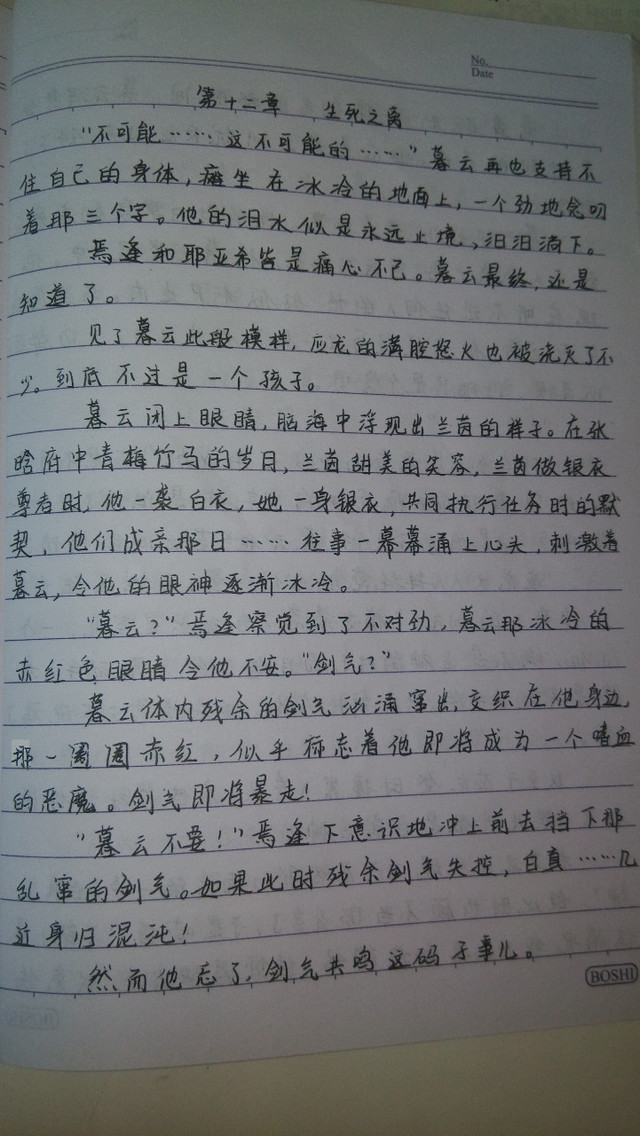 No.
Date
第十二章 生死之离
“不可能……这不可能的……”暮云再也支持不
住自己的身体，瘫坐在冰冷的地面上，一个劲地念叨
着那三个字。他的泪水似是永远止境，汩汩淌下。
焉逢和耶亚希皆是痛心不已。暮云最终，还是
知道了。
见了暮云此般模样，应龙的满腔怒火也被浇灭了不
少。到底不过是一个孩子。
暮云闭上眼睛，脑海中浮现出兰茵的样子。在张
晗府中青梅竹马的岁月，兰茵甜美的笑容，兰茵做银衣
尊者时，他一袭白衣，她一身银衣，共同执行任务时的默
契，他们成亲那日……往事一幕幕涌上心头，刺激着
暮云，令他的眼神逐渐冰冷。
“暮云？”焉逢察觉到了不对劲，暮云那冰冷的
赤红色眼睛令他不安。“剑气？”
暮云体内残余的剑气汹涌窜出，交织在他身边，
那一圈圈赤红，似乎标志着他即将成为一个嗜血
的恶魔。剑气即将暴走！
“暮云不要！”焉逢下意识地冲上前去挡下那
乱窜的剑气。如果此时残余剑气失控，白真……几
近身归混沌！
然而他忘了，剑气共鸣这码子事儿。
BOSHI